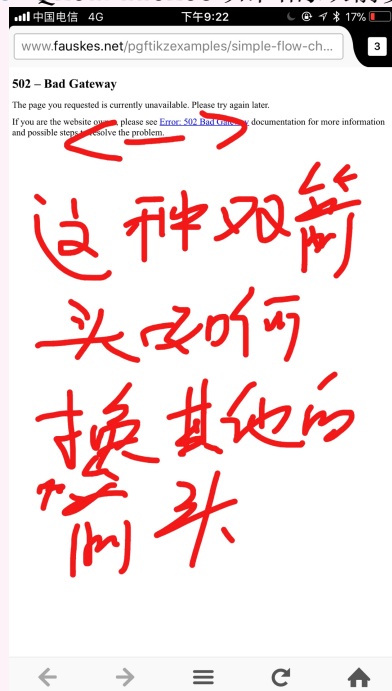 中国电信 4G 下午9:22 17%
www.fauskes.net/pgftikzexamples/simple-flow-ch...
3
502 – Bad Gateway
The page you requested is currently unavailable. Please try again later.
If you are the website owner, please see Error: 502 Bad Gateway documentation for more information
and possible steps to resolve the problem.
这种双箭
头如何
换其他的
箭头